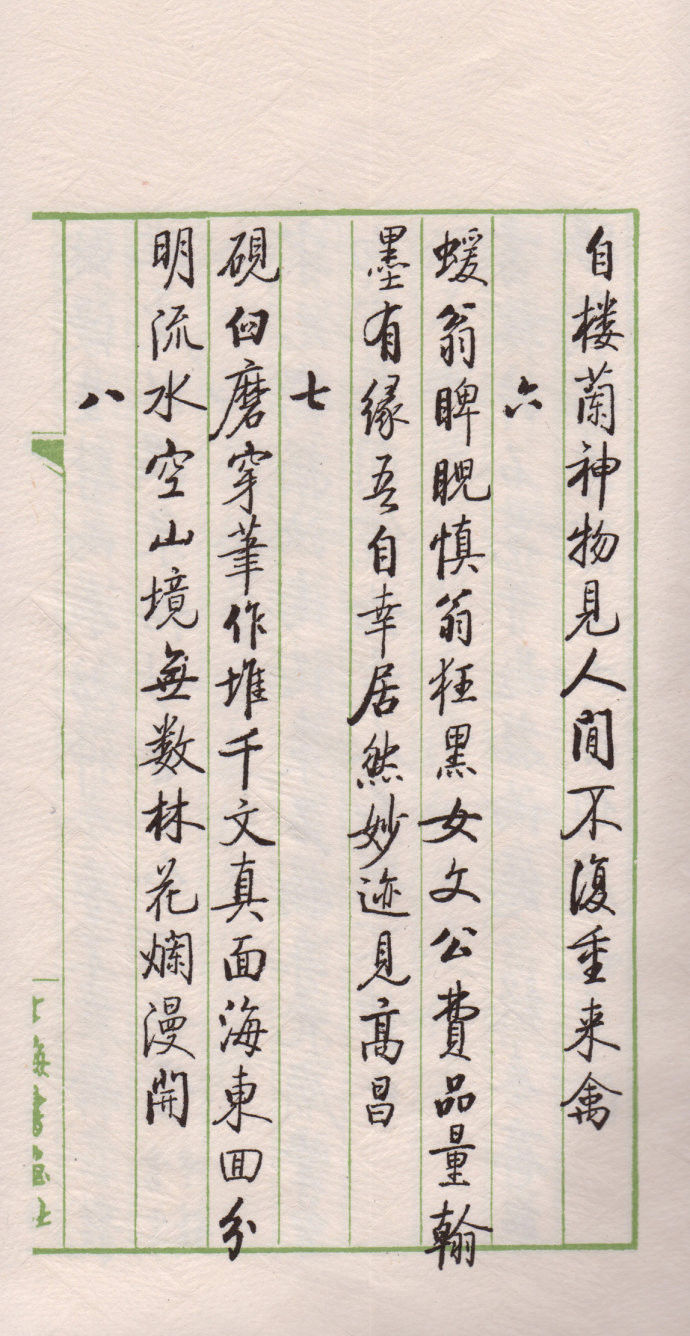 自楼蘭神物見人間不復重来禽
六
蝯翁睥睨慎翁狂黑女文公費品量翰
墨有缘吾自幸居然妙迹見高昌
七
硯臼磨穿筆作堆千文真面海東回分
明流水空山境無数林花爛漫開
八
上海書畫社